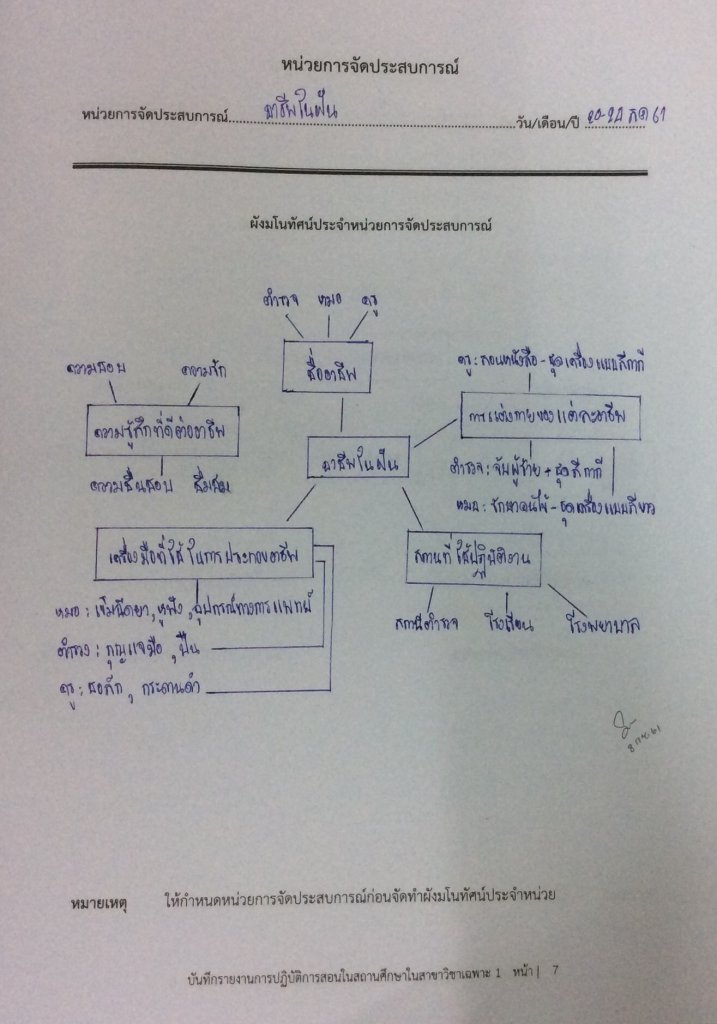 หน่วยการจัดประสบการณ์
หน่วยการจัดประสบการณ์ อาชีพในฝัน วัน/เดือน/ปี
ผังมโนทัศน์ประจำหน่วยการจัดประสบการณ์
ตำรวจ หมอ ครู
ชื่ออาชีพ
ความชอบ ความรัก
ความรู้สึกที่ดีต่ออาชีพ
ความชื่นชอบ ชื่นชม
อาชีพในฝัน
ครู : สอนหนังสือ - ชุดเครื่องแบบสีกากี
การแต่งกายของแต่ละอาชีพ
ตำรวจ : จับผู้ร้าย + ชุดสีกากี
หมอ : รักษาคนไข้ - ชุดเครื่องแบบสีขาว
เครื่องมือที่ใช้ในการประกอบอาชีพ
หมอ : เข็มฉีดยา , หูฟัง , อุปกรณ์ทางการแพทย์
ตำรวจ : กุญแจมือ , ปืน
ครู : ชอล์ก , กระดานดำ
สถานที่ใช้ปฏิบัติงาน
สถานีตำรวจ โรงเรียน โรงพยาบาล
หมายเหตุ ให้กำหนดหน่วยการจัดประสบการณ์ก่อนจัดทำผังมโนทัศน์ประจำหน่วย
บันทึกรายงานการปฏิบัติการสอนในสถานศึกษาในสาขาวิชาเฉพาะ 1 หน้า | 7